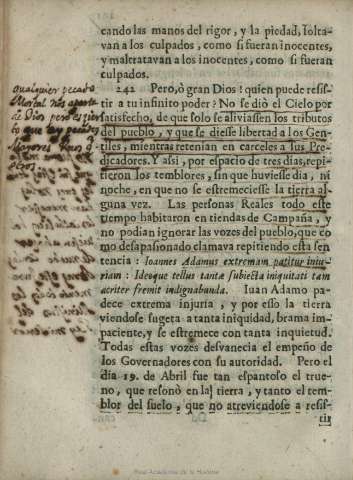 cando las manos del rigor, y la piedad, ſolta-
van a los culpados, como ſi fueran inocentes,
y maltratavan a los inocentes, como ſi fueran
culpados.
242 Pero, ò gran Dios! quien puede reſiſ-
tir a tu infinito poder? No ſe diò el Cielo por
ſatisfecho, de que ſolo ſe aliviaſſen los tributos
del pueblo, y que ſe dieſſe libertad a los Gen-
tiles, mientras retenian en carceles a ſus Pre-
dicadores. Y aſsi, por eſpacio de tres dias, repi-
tieron los temblores, ſin que huvieſſe dia, ni
noche, en que no ſe eſtremecieſſe la tierra al-
guna vez. Las perſonas Reales todo eſte
tiempo habitaron en tiendas de Campaña, y
no podian ignorar las vozes del pueblo, que co
mo deſapaſionado clamava repitiendo eſta ſen
tencia: Ioannes Adamus extremam patitur iniu-
riam: Ideoque tellus tantæ ſubiecta iniquitati tam
acriter fremit indignabunda. Iuan Adamo pa-
dece extrema injuria, y por eſſo la tierra
viendoſe ſugeta a tanta iniquidad, brama im-
paciente, y ſe eſtremece con tanta inquietud.
Todas eſtas vozes deſvanecia el empeño de
los Governadores con ſu autoridad. Pero el
dia 19. de Abril fue tan eſpantoſo el true-
no, que reſonò en la tierra, y tanto el tem-
blor del ſuelo, que no atreviendoſe a reſiſ-
tir
qualquier pecado
Mortal nos aparta
de Dios pero
que
Mayores
Real Academia de la Historia